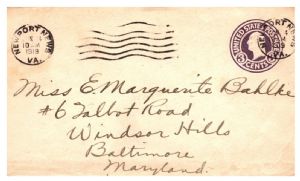 NEWPORT NEWS
10 AM
1919
VA.
UNITED STATES POSTAGE
CENTS
Miss E. Margarete Bahlke
#6 Talbot Road
Windsor Hills
Baltimore
Maryland.